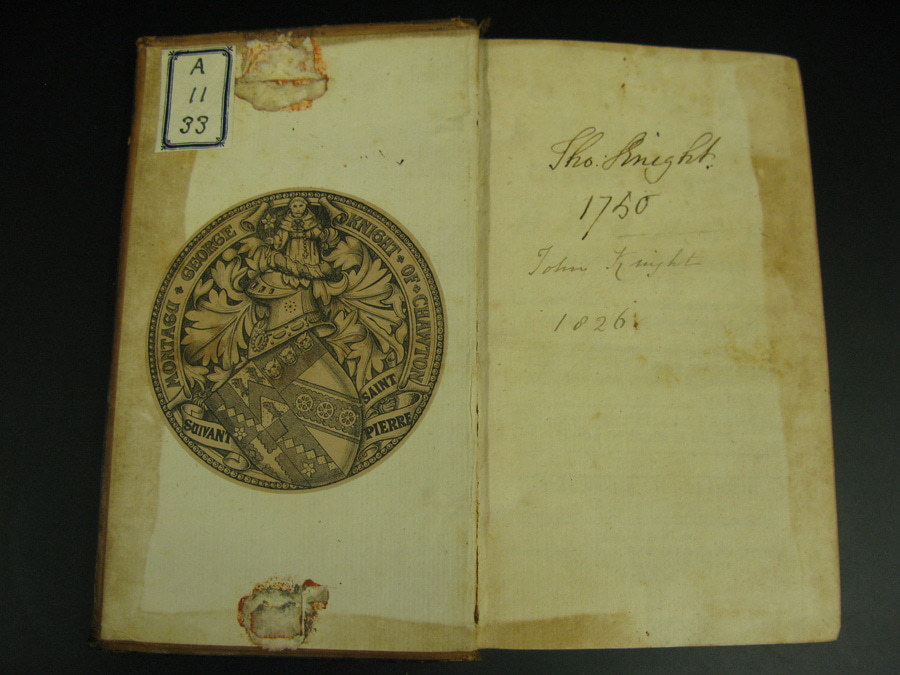 A
11
33
MONTAGU · GEORGE KNIGHT · OF · CHAWTON
SUIVANT SAINT PIERRE
Tho: Knight.
1750
John Knight
1826.